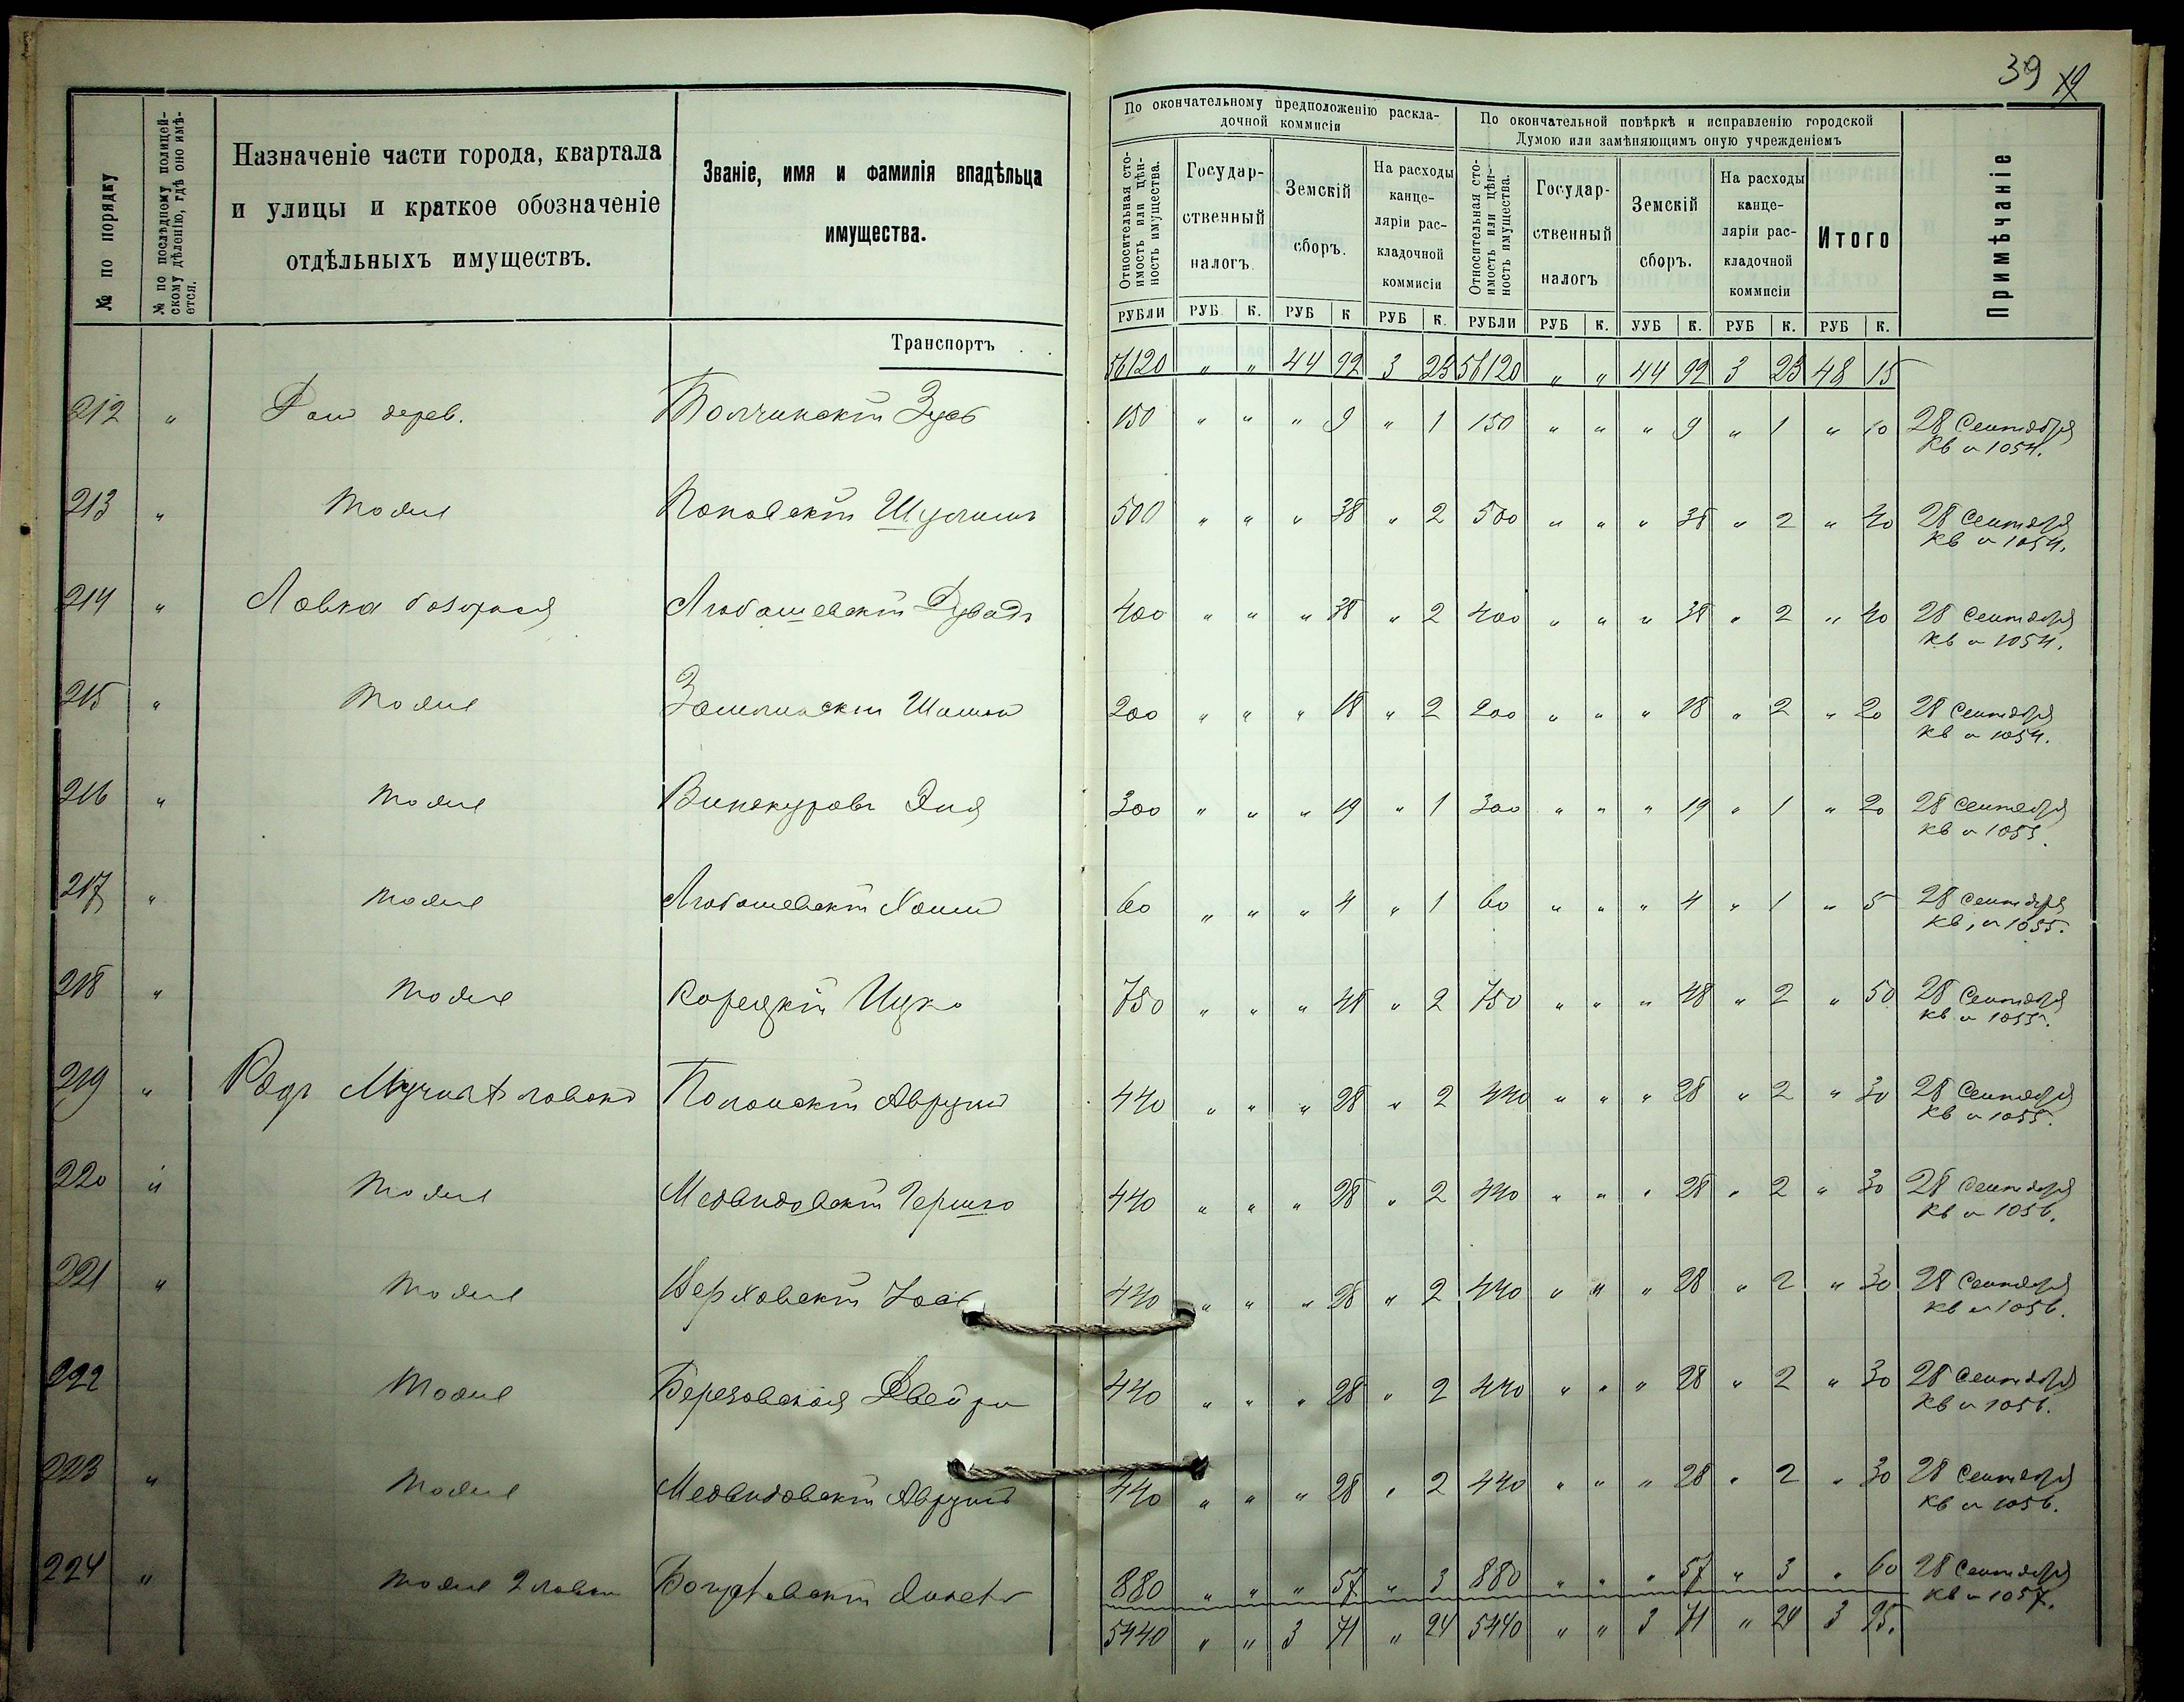 39 19
№ по порядку
№ по послѣднему полицей-
скому дѣленію, гдѣ оно имѣ-
ется.
Назначеніе части города, квартала
и улицы и краткое обозначеніе
отдѣльныхъ имуществъ.
Званіе, имя и фамилія владѣльца
имущества.
По окончательному предположенію раскла-
дочной коммисіи
По окончательной повѣркѣ и исправленію городской
Думою или замѣняющимъ оную учрежденіемъ
Относительная сто-
имость или цѣн-
ность имущества.
Государ-
ственный
налогъ.
Земскій
сборъ.
На расходы
канце-
ляріи рас-
кладочной
коммисіи
Относительная сто-
имость или цѣн-
ность имущества.
Государ-
ственный
налогъ
Земскій
сборъ.
На расходы
канце-
ляріи рас-
кладочной
коммисіи
Итого
Примѣчаніе
РУБЛИ РУБ. К. РУБ К РУБ К. РУБЛИ РУБ К. УУБ К. РУБ К. РУБ К.
Транспортъ . .
56120 " " 44 92 3 23 56120 " " 44 92 3 23 48 15
212 " Дом дерев. Зусь 150 " " " 9 " 1 150 " " " 9 " 1 " 10 28 Сентября
Кв 1054.
213 " Тоже 500 " " " 38 " 2 500 " " " 38 " 2 " 40 28 Сентября
Кв 1054.
214 " Лавка базарная Любашевскій Дувидъ 400 " " " 38 " 2 400 " " " 38 " 2 " 40 28 Сентября
Кв 1054.
215 " Тоже 200 " " " 18 " 2 200 " " " 18 " 2 " 20 28 Сентября
Кв 1054.
216 " Тоже Винокуровъ 300 " " " 19 " 1 300 " " " 19 " 1 " 20 28 Сентября
Кв 1055.
217 " Тоже Любашевскій Хаим 60 " " " 4 " 1 60 " " " 4 " 1 " 5 28 Сентября
Кв 1055.
218 " Тоже Корецкій Ицко 750 " " " 48 " 2 750 " " " 48 " 2 " 50 28 Сентября
Кв 1055.
219 " Рядъ Полонскій Аврум 440 " " " 28 " 2 440 " " " 28 " 2 " 30 28 Сентября
Кв 1055.
220 " Тоже Медвидовскій Гершко 440 " " " 28 " 2 440 " " " 28 " 2 " 30 28 Сентября
Кв 1056.
221 " Тоже Верховскій 440 " " " 28 " 2 440 " " " 28 " 2 " 30 28 Сентября
Кв 1056.
222 Тоже Березовская Двейра 440 " " " 28 " 2 440 " " " 28 " 2 " 30 28 Сентября
Кв 1056.
223 " Тоже Медвидовскій Аврум 440 " " " 28 " 2 440 " " " 28 " 2 " 30 28 Сентября
Кв 1056.
224 " Тоже 2 лавки 880 " " " 57 " 3 880 " " " 57 " 3 " 60 28 Сентября
Кв 1057.
5440 " " 3 71 " 24 5440 " " 3 71 " 24 3 95.